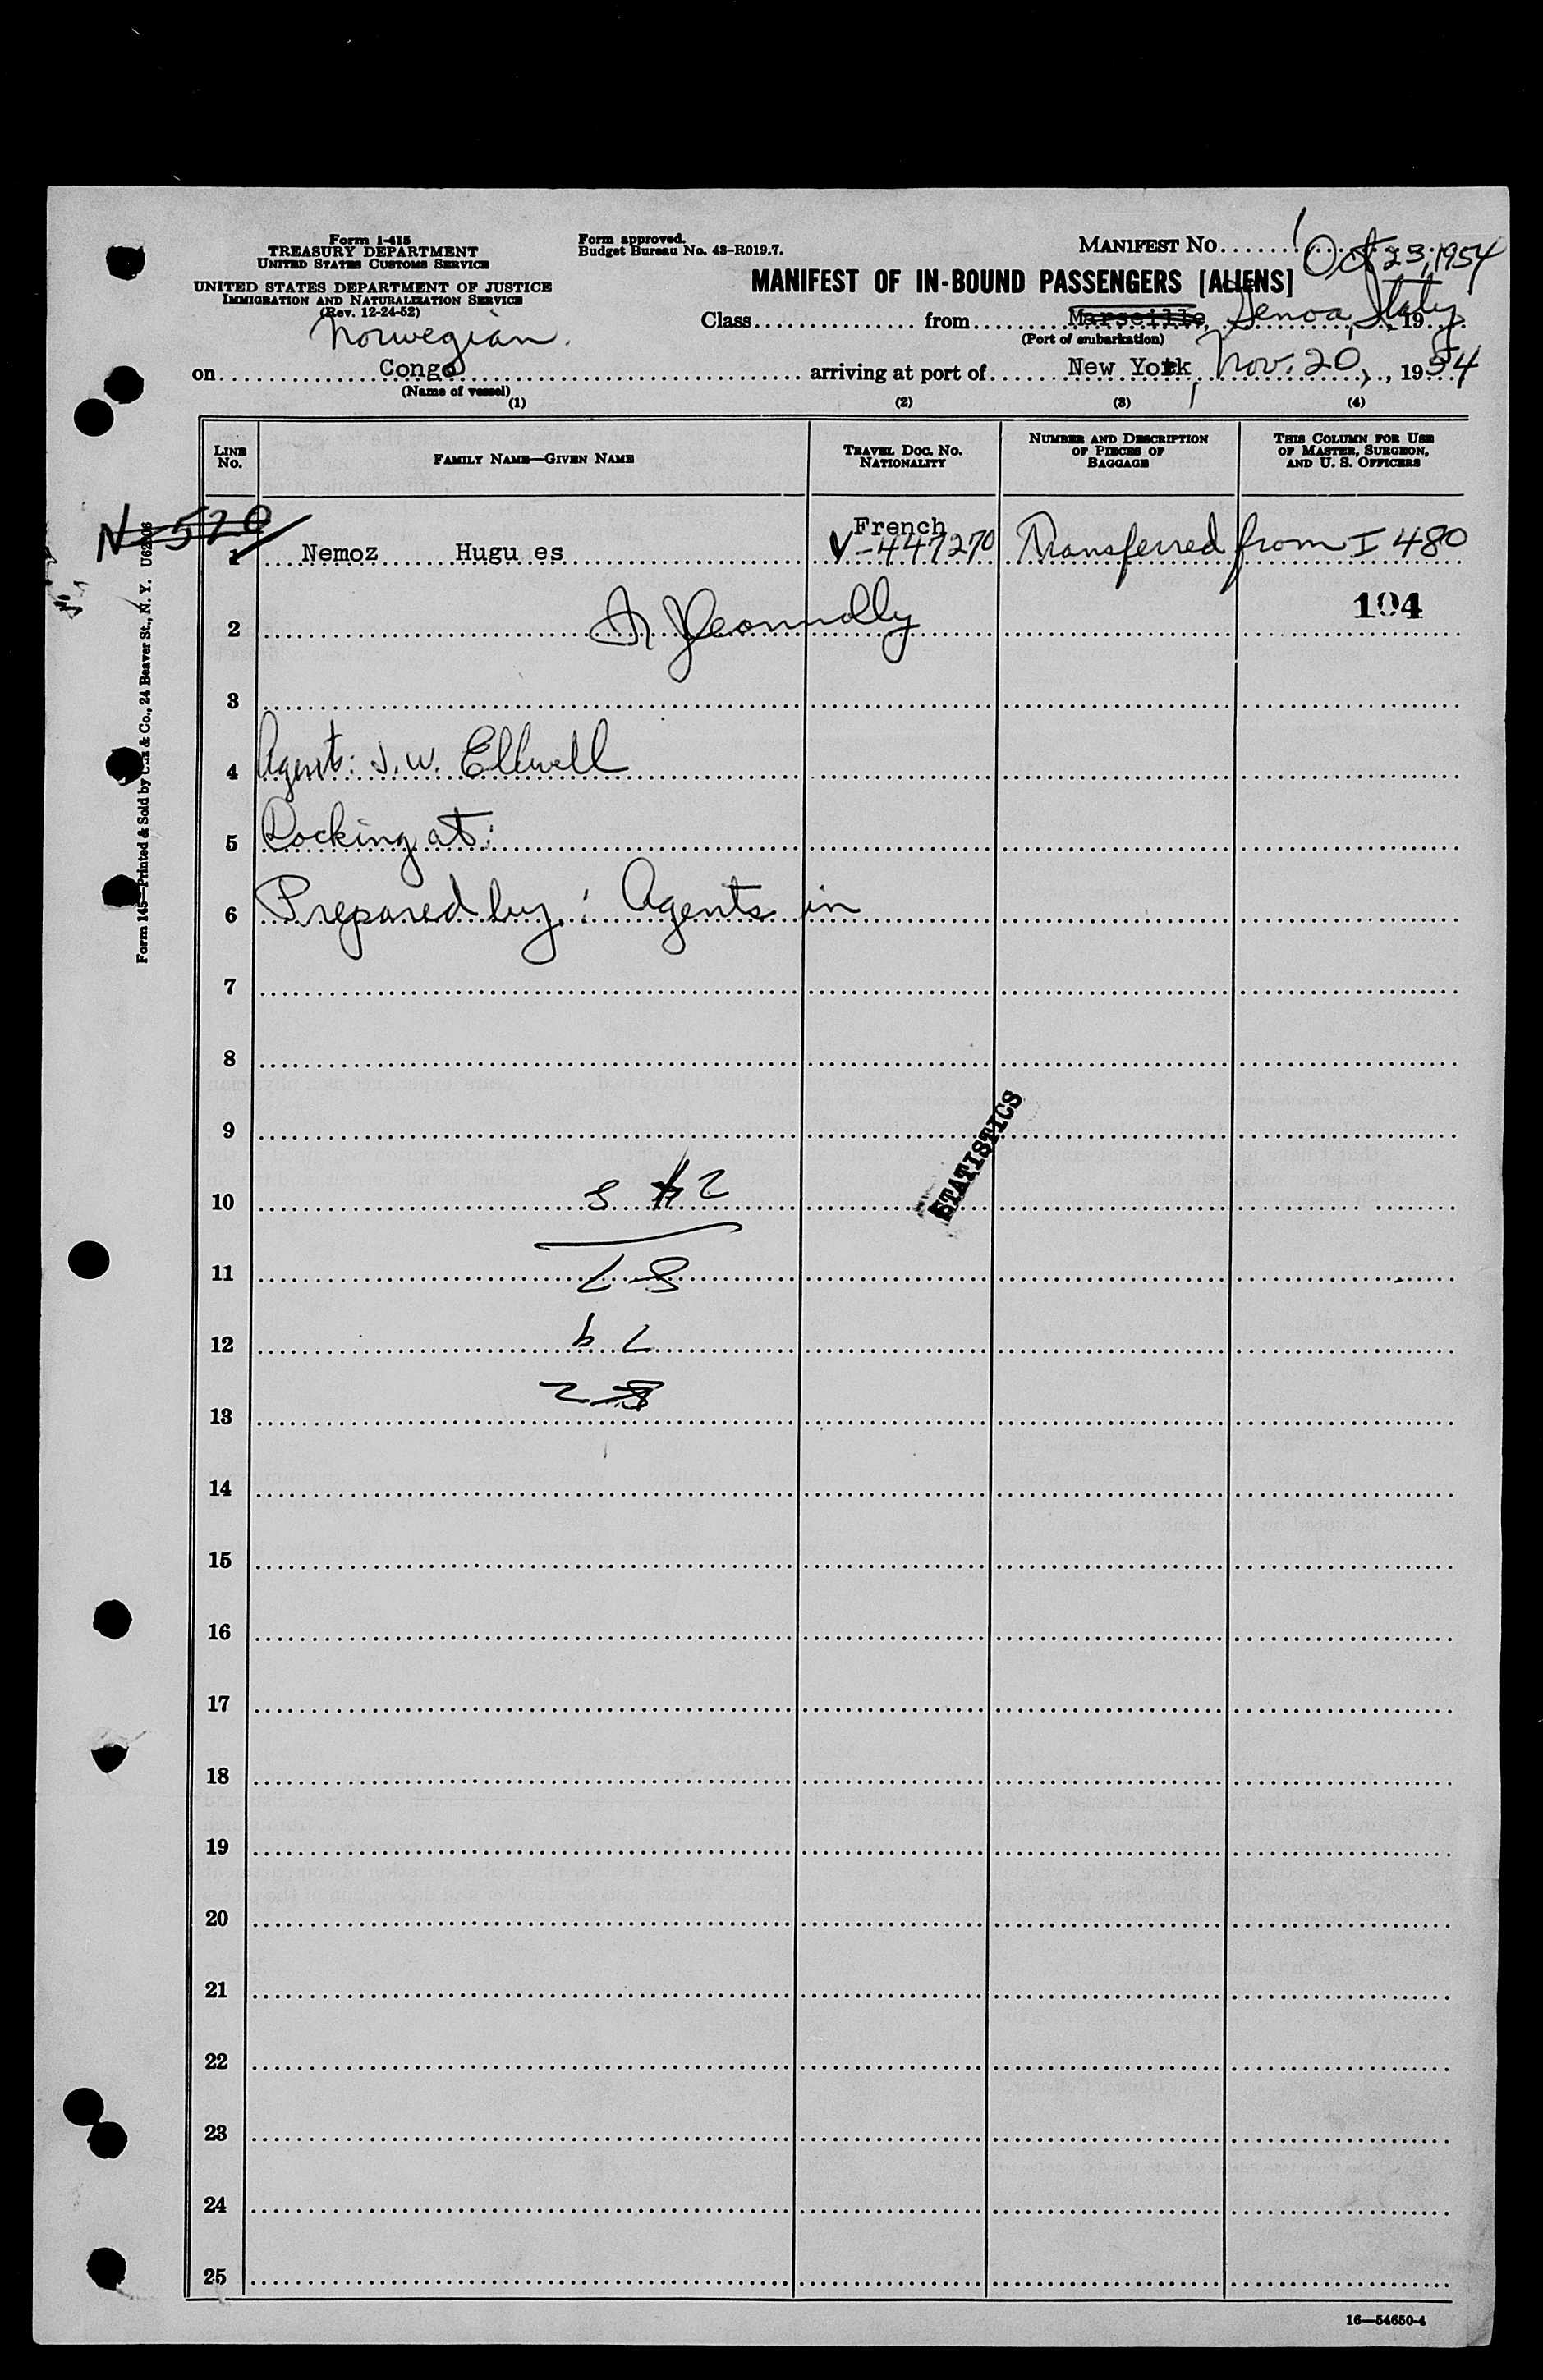 Form I-415
TREASURY DEPARTMENT
UNITED STATES CUSTOMS SERVICE
UNITED STATES DEPARTMENT OF JUSTICE
IMMIGRATION AND NATURALIZATION SERVICE
(Rev. 12-24-52)
Form approved.
Budget Bureau No. 43-R019.7.
MANIFEST No. 1
MANIFEST OF IN-BOUND PASSENGERS [ALIENS]
Oct 23, 1954
Class from Marseille, Genoa, Italy, 19
(Port of embarkation)
Norwegian
on Congo arriving at port of New York Nov. 20, 1954
(Name of vessel)
(1) (2) (3) (4)
LINE No.
FAMILY NAME—GIVEN NAME
TRAVEL DOC. NO. NATIONALITY
NUMBER AND DESCRIPTION OF PIECES OF BAGGAGE
THIS COLUMN FOR USE OF MASTER, SURGEON, AND U. S. OFFICERS
N-520
French
1 Nemoz Hugu es V-447270 Transferred from I 480
2 104
3
4 Agent: J.W. Ellwell
5 Docking at:
6 Prepared by: Agents in
7
8
9
STATISTICS
10
11
12
13
14
15
16
17
18
19
20
21
22
23
24
25
16—54650-4
Form 145—Printed & Sold by & Co., 24 Beaver St., N. Y.